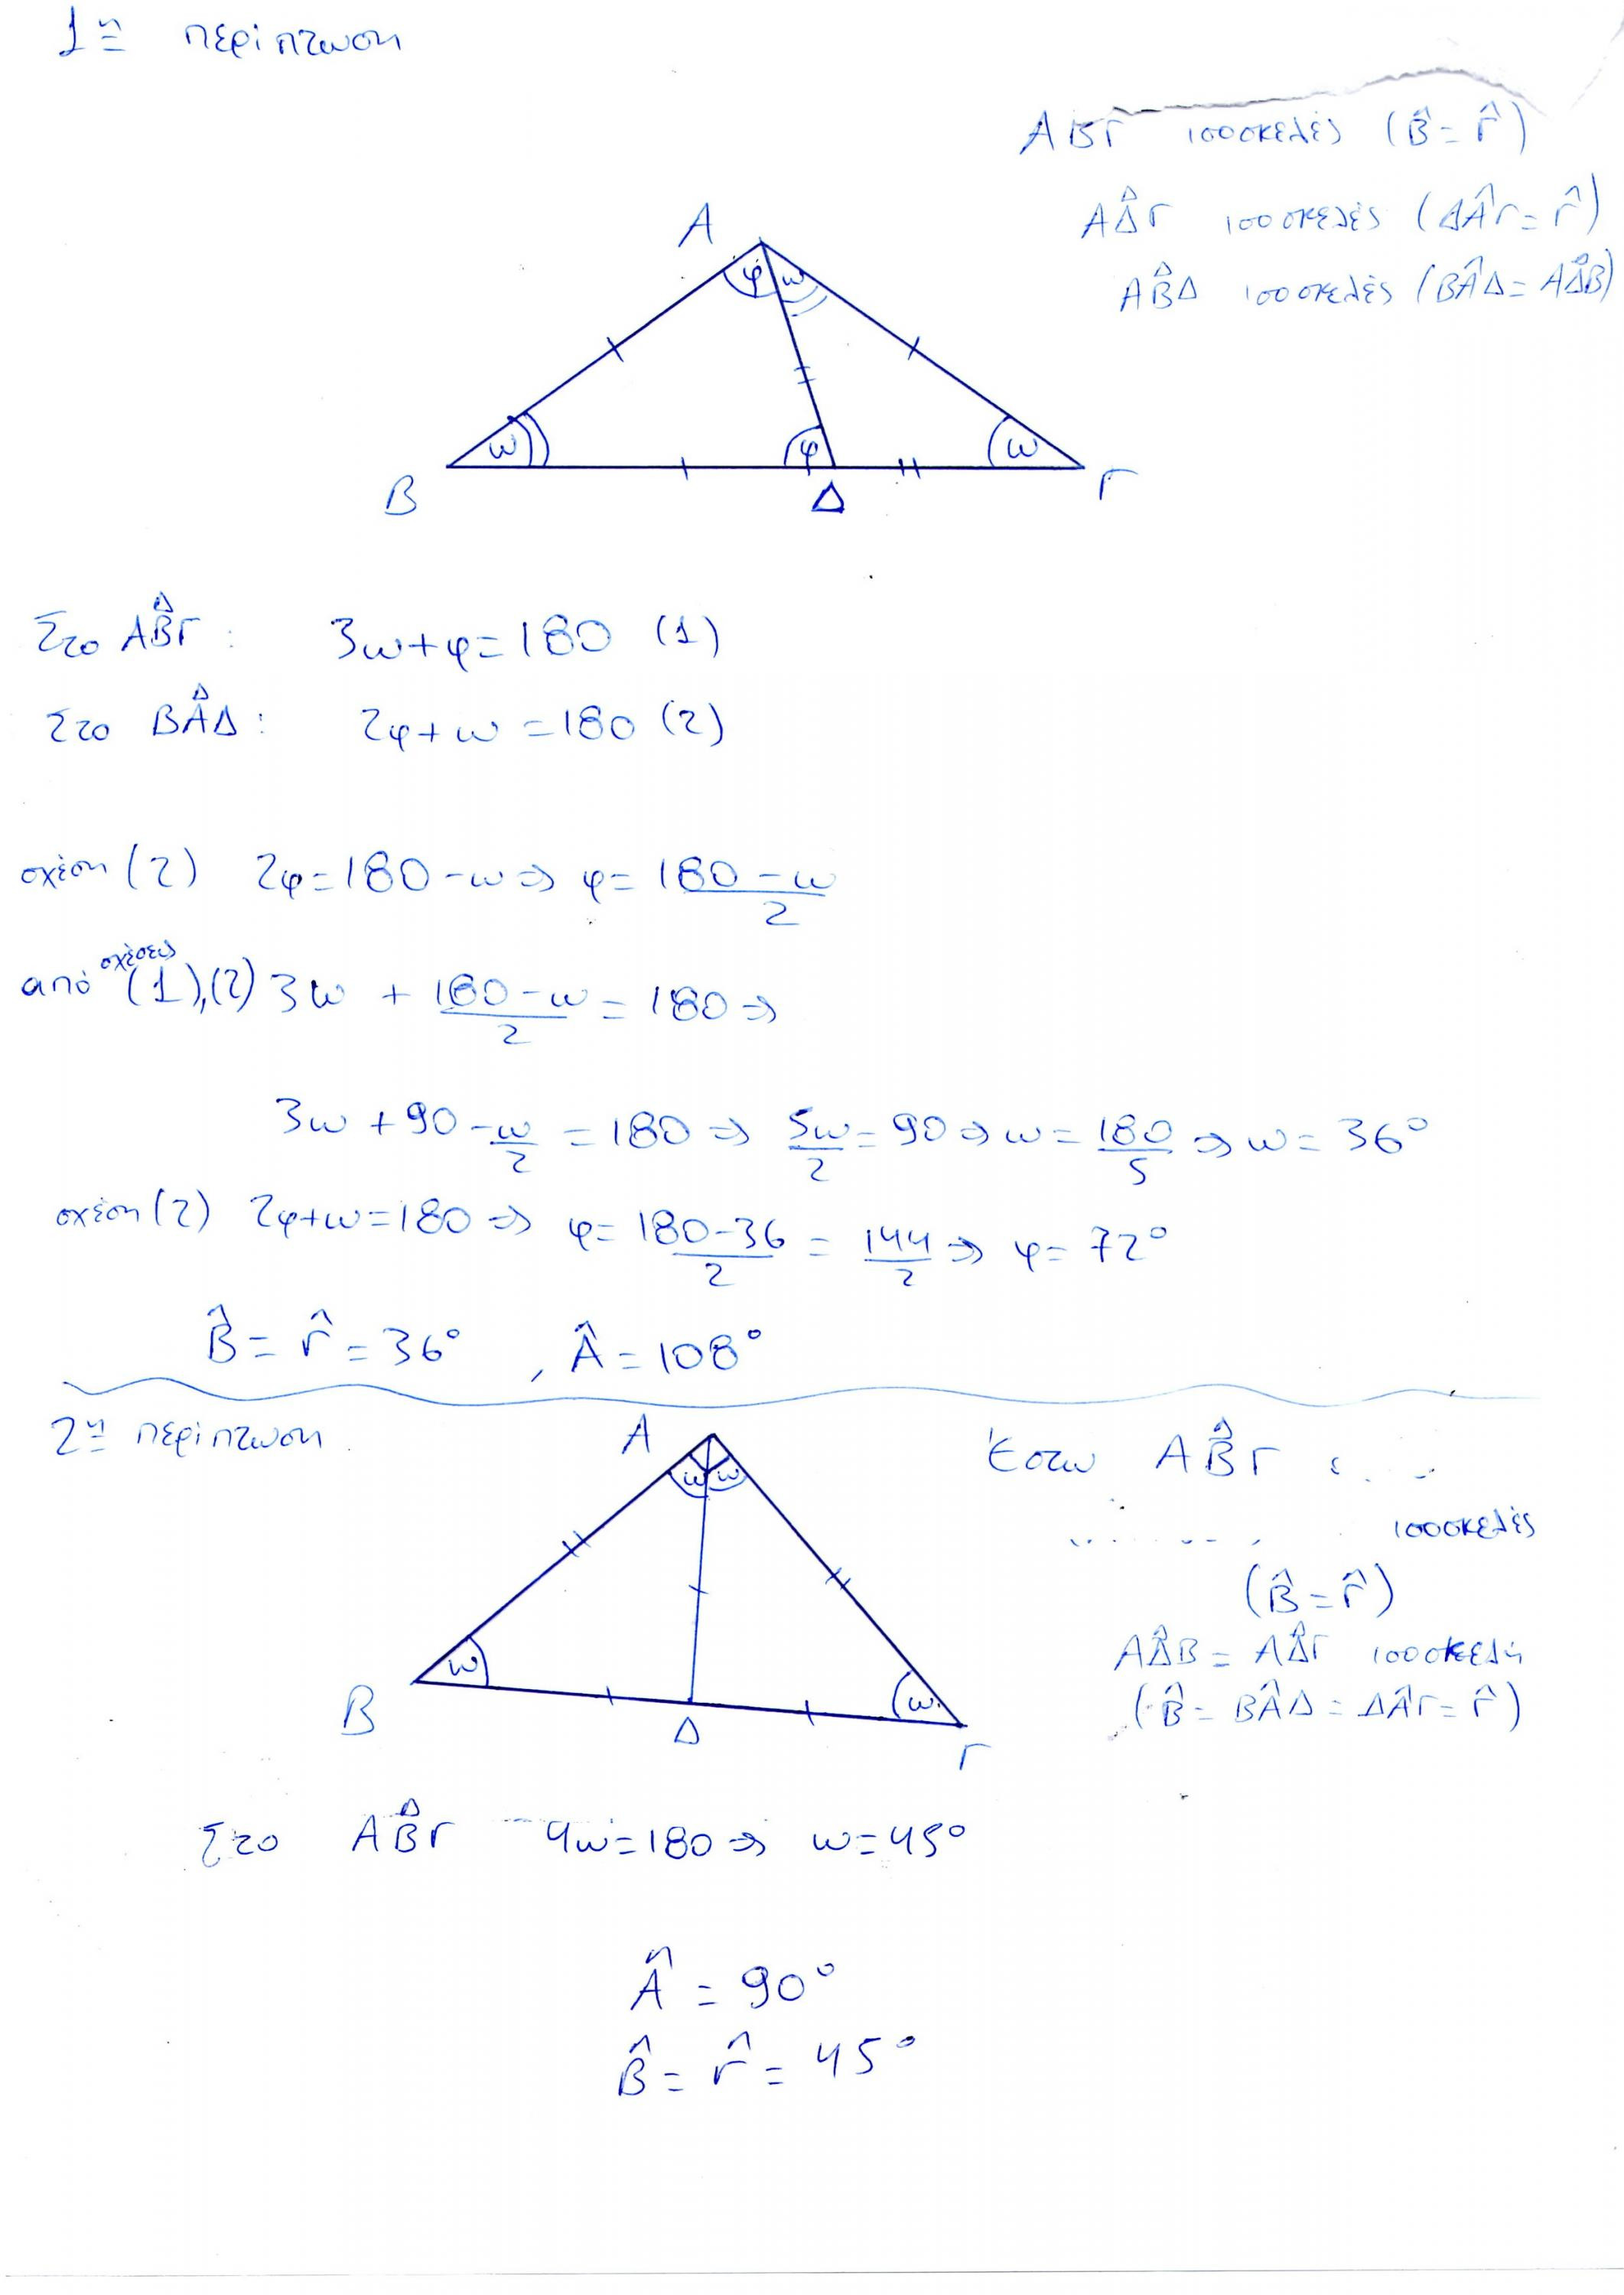 1η περίπτωση
ΑΒΓ ισοσκελές (Β̂ = Γ̂)
ΑΔ̂Γ ισοσκελές (ΔΑ̂Γ = Γ̂)
ΑΒ̂Δ ισοσκελές (ΒΑ̂Δ = ΑΔ̂Β)
Α
φ ω
ω φ ω
Β Δ Γ
Στο ΑΒ̂Γ : 3ω+φ=180 (1)
Στο ΒΑ̂Δ : 2φ+ω=180 (2)
σχέση (2) 2φ=180-ω⇒ φ= (180-ω)/2
από σχέσεις (1),(2) 3ω + (180-ω)/2 = 180⇒
3ω+90-ω/2 = 180⇒ 5ω/2=90⇒ω=180/5⇒ω=36°
σχέση (2) 2φ+ω=180⇒ φ= (180-36)/2 = 144/2⇒ φ=72°
Β̂ = Γ̂ = 36° , Α̂ = 108°
2η περίπτωση
Α
Έστω ΑΒ̂Γ
ισοσκελές
(Β̂ = Γ̂)
ΑΔ̂Β = ΑΔ̂Γ ισοσκελή
(Β̂ = ΒΑ̂Δ = ΔΑ̂Γ = Γ̂)
ω ω
ω ω
Β Δ Γ
Στο ΑΒ̂Γ 4ω=180⇒ ω=45°
Α̂ = 90°
Β̂ = Γ̂ = 45°